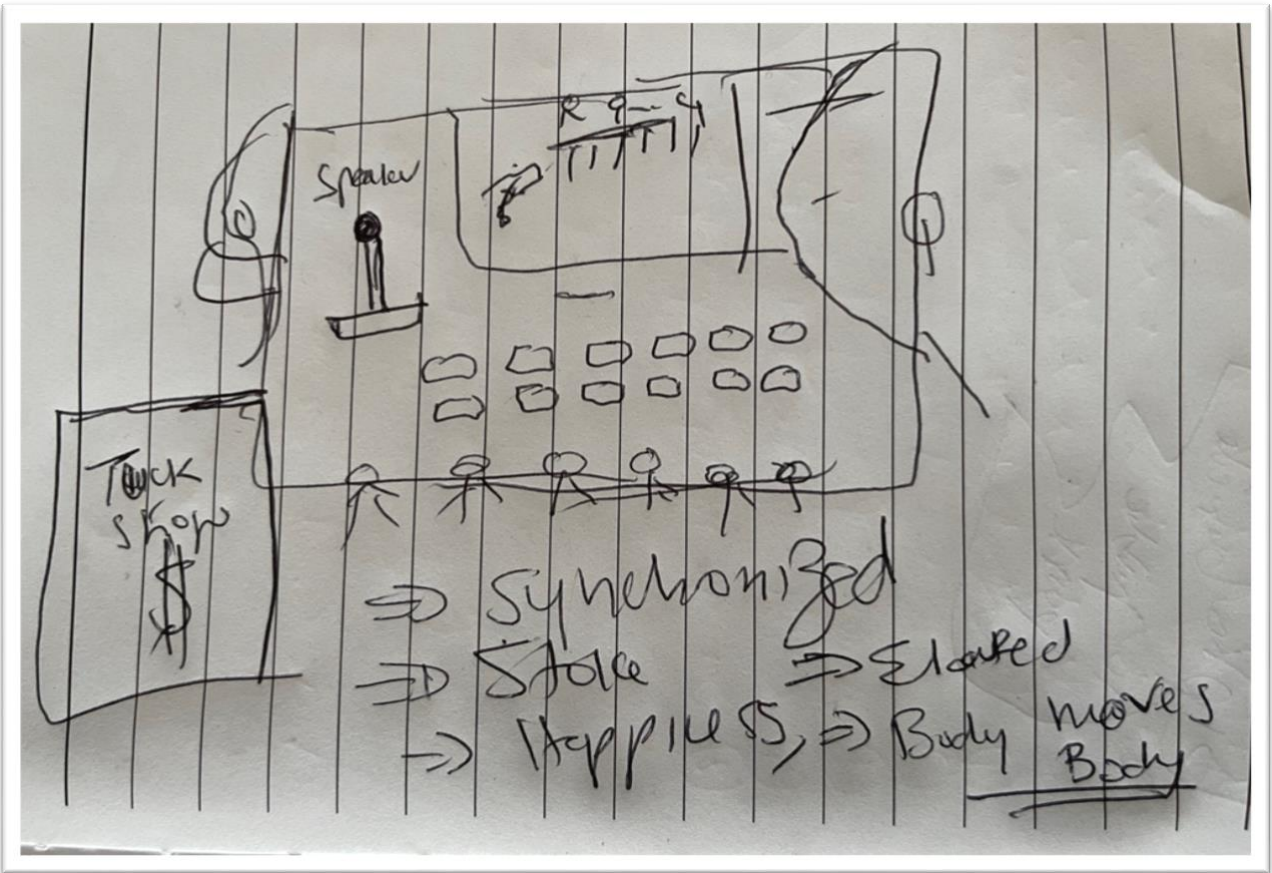 Speaker
Tuck
Shop
$
⇒ Synchronized
⇒ Stoke ⇒ Elated
⇒ Happiness, ⇒ Body moves
Body